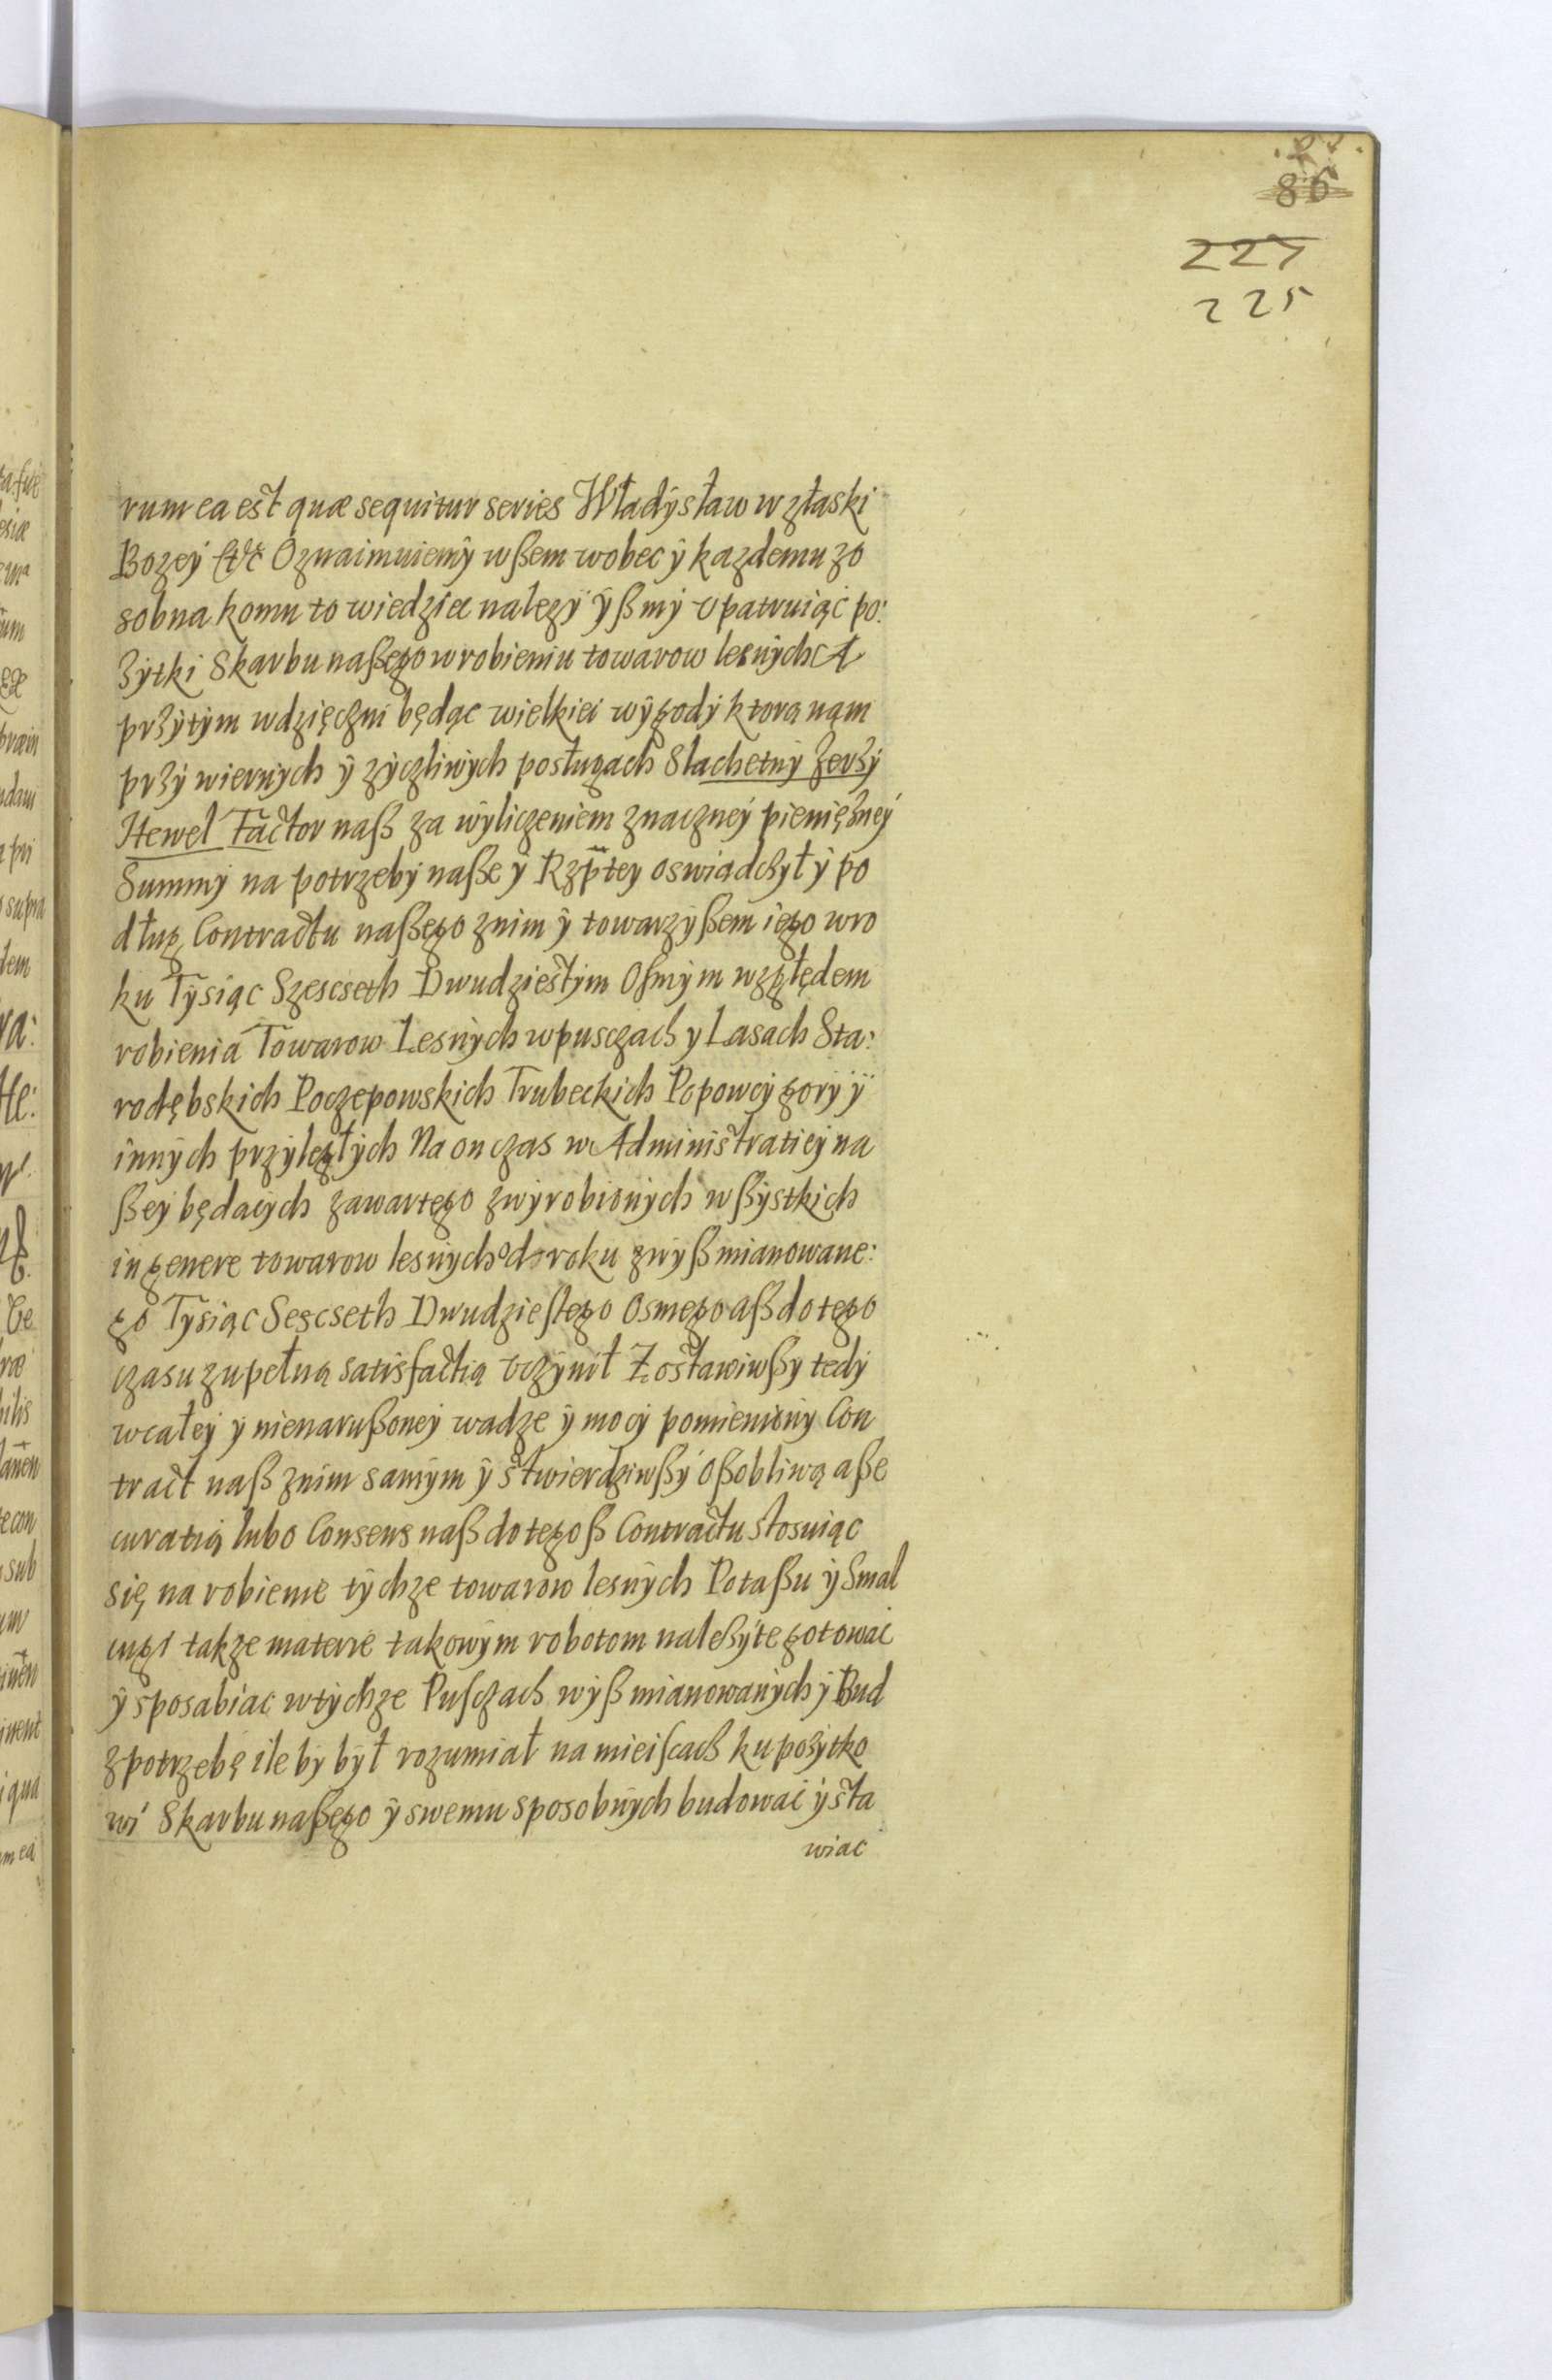 86
227
225
rum ea est quæ sequitur series Władysław w złaski
Bozey &c Oznaimuiemy wßem wobec y kazdemu zo
sobna komu to wiedziec nalezy yßmy vpatruiąc po:
zytki Skarbu naßego w robieniu towarow lesnych A
przytym wdzięczni będąc wielkiei wygody ktorą nąm
przy wiernych y zyczliwych posługach Slachetny Jerzy
Hewel Factor naß za wyliczeniem znaczney pieniężney
Summy na potrzeby naße y Rzptey oswiadczył y po
dług Contractu naßego znim y towarzyßem iego w ro
ku Tysiąc Szescseth Dwudziestym Osmym względem
robienia Towarow Lesnych w pusczach y Lasach Sta:
rodębskich Poczepowskich Trubeckich Popowey gory y
innych przyległych Na on czas w Administratiey na
ßey będacych zawartego zwyrobionych wßystkich
in genere towarow lesnych od roku zwyß mianowane:
go Tysiąc Sescseth Dwudziestego Osmego aß do tego
czasu zupełną satisfactią vczynił Zostawiwßy tedy
w całey y nienarußoney wadze y mocy pomieniony Con
tract naß znim samym y stwierdziwßy oßobliwą aße
curatią lubo Consens naß do tegoß Contractu stosuiąc
się na robienie tychze towarow lesnych Potaßu y Smal
cugi takze materie takowym robotom należyte gotowac
y sposabiac w tychze Pusczach wyß mianowanych y Bud
z potrzebę ile by był rozumiał na mieiscach ku pożytko
wi Skarbu naßego y swemu sposobnych budowac y sta
wiac